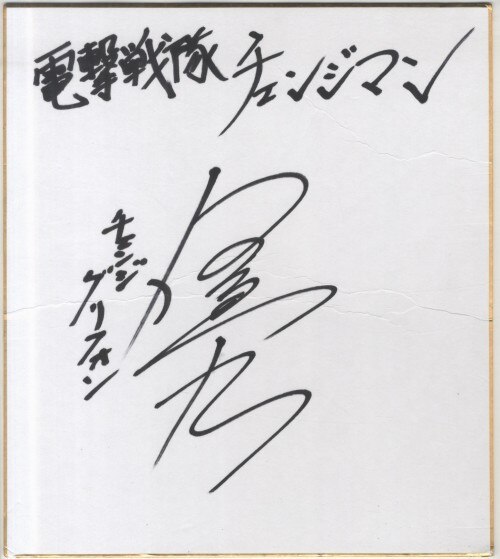 電撃戦隊 チェンジマン
チェンジ
グリフォン